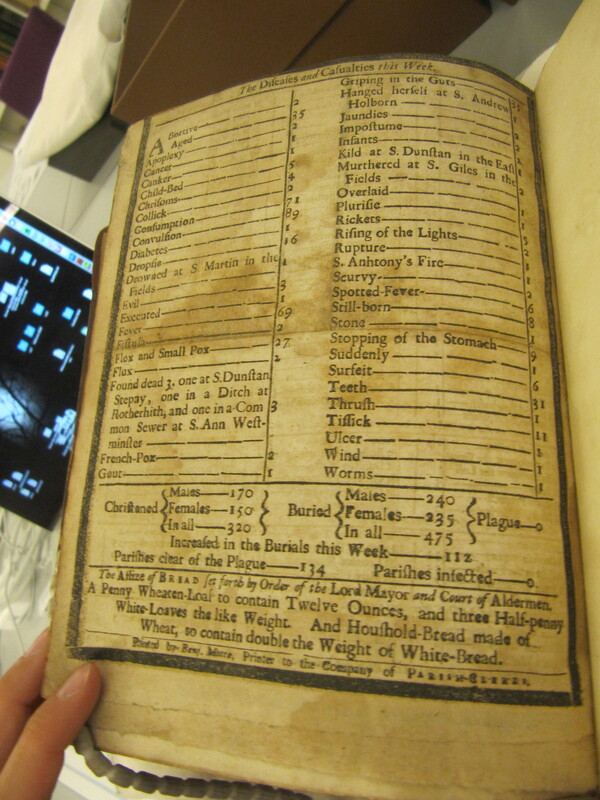 The Diseases and Casualties this Week.
Abortive 2
Aged 35
Apoplexy 2
Cancer 1
Canker 1
Child-Bed 5
Chrisoms 4
Collick 2
Consumption 71
Convulsion 89
Diabetes 1
Dropsie 16
Drowned at S. Martin in the
Fields 1
Evil 3
Executed 1
Fever 69
Fistula 2
Flox and Small Pox 27
Flux 2
Found dead 3, one at S. Dunstan,
Stepny, one in a Ditch at
Rotherhith, and one in a Com 3
mon Sewer at S. Ann West-
minster
French-Pox 2
Gout 1
Griping in the Guts
Hanged herself at S. Andrew
Holborn
Jaundies
Impostume
Infants
Kild at S. Dunstan in the East
Murthered at S. Giles in the
Fields
Overlaid
Plurisie
Rickets
Rising of the Lights
Rupture
S. Anhtony's Fire
Scurvy
Spotted-Fever 6
Still-born 8
Stone 1
Stopping of the Stomach 9
Suddenly 1
Surfeit 6
Teeth 31
Thrush 1
Tissick 11
Ulcer 2
Wind 1
Worms 1
Christened Males—170 Females—150 In all—320
Buried Males—240 Females—235 In all—475 Plague—0
Increased in the Burials this Week—112
Parishes clear of the Plague—134 Parishes infected—0.
The Assize of BREAD set forth by Order of the Lord Mayor and Court of Aldermen.
A Penny Wheaten-Loaf to contain Twelve Ounces, and three Half-penny
White-Loaves the like Weight. And Houshold-Bread made of
Wheat, to contain double the Weight of White-Bread.
Printed by Printer to the Company of PARISH-CLERKS.